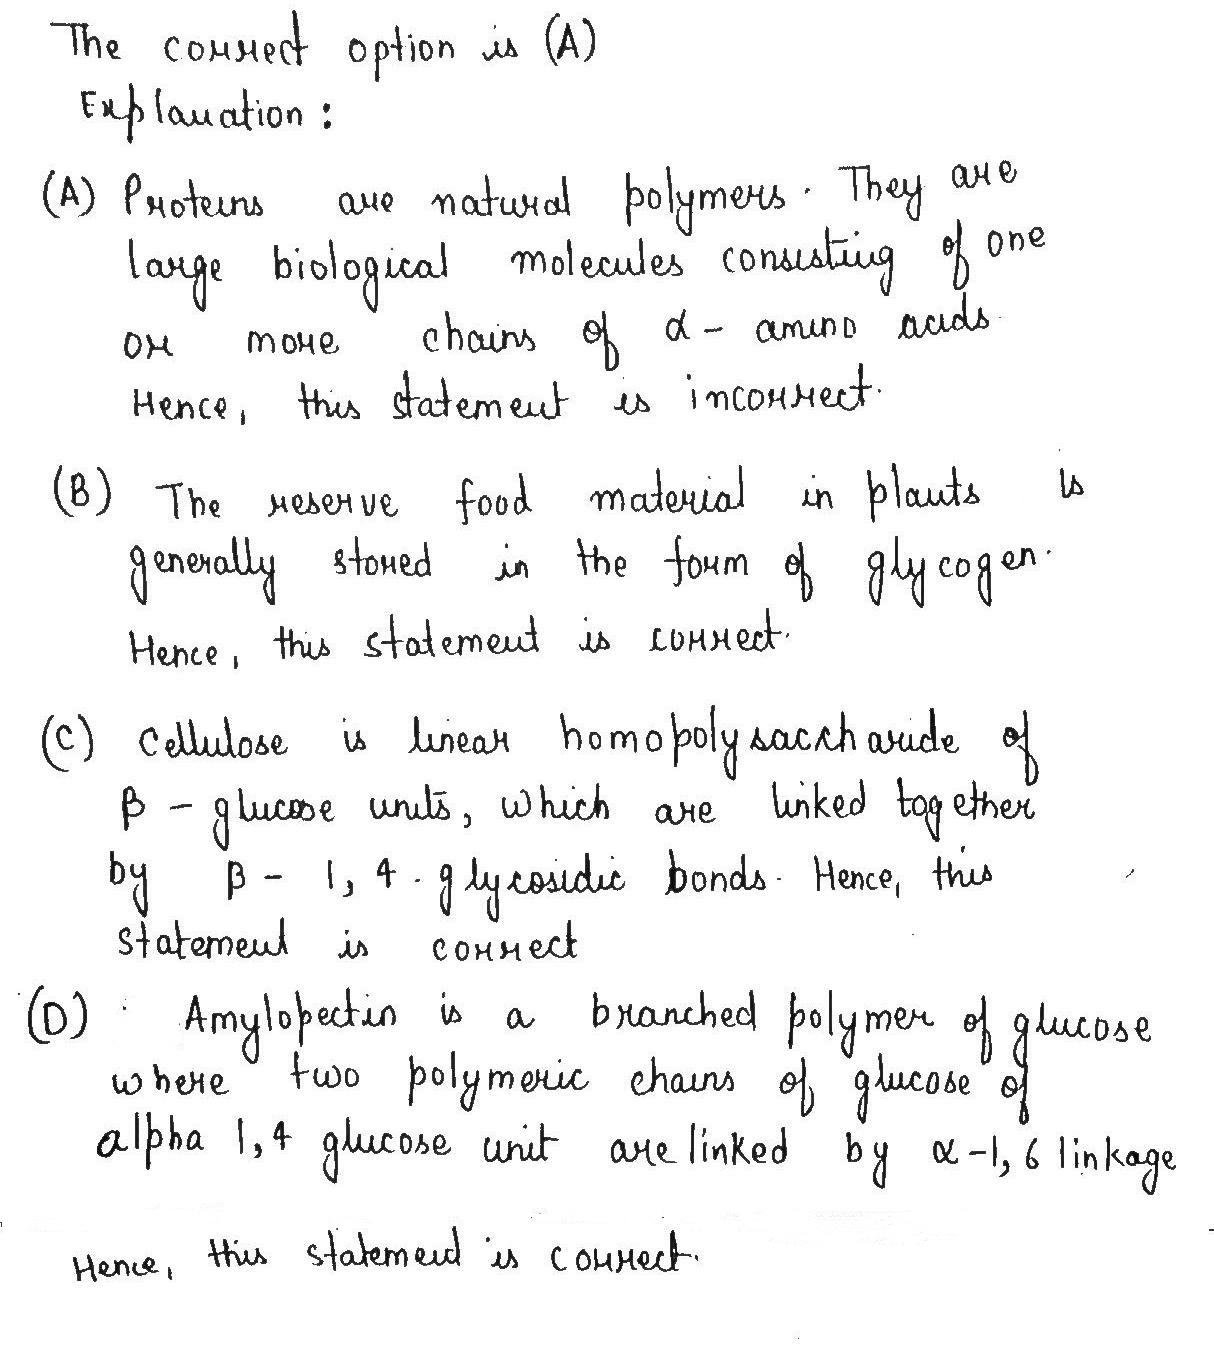 The correct option is (A)
Explanation :
(A) Proteins are natural polymers. They are
large biological molecules consisting of one
or more chains of α - amino acids
Hence, this statement is incorrect.
(B) The reserve food material in plants is
generally stored in the form of glycogen.
Hence, this statement is correct.
(C) Cellulose is linear homopolysaccharide of
β - glucose units, which are linked together
by β - 1, 4 - glycosidic bonds. Hence, this
statement is correct
(D) Amylopectin is a branched polymer of glucose
where two polymeric chains of glucose of
alpha 1,4 glucose unit are linked by α-1, 6 linkage
Hence, this statement is correct.